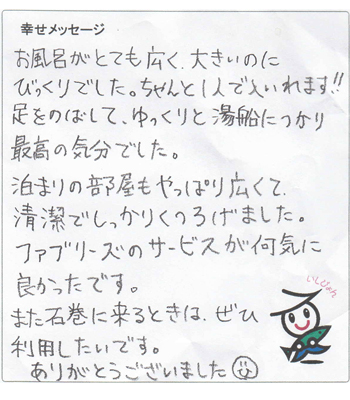 幸せメッセージ
お風呂がとても広く、大きいのに
びっくりでした。ちゃんと1人で入いれます!!
足をのばして、ゆっくりと湯船につかり
最高の気分でした。
泊まりの部屋もやっぱり広くて、
清潔でしっかりくつろげました。
ファブリーズのサービスが何気に
良かったです。
いしぴょん
また石巻に来るときは、ぜひ
利用したいです。
ありがとうございました